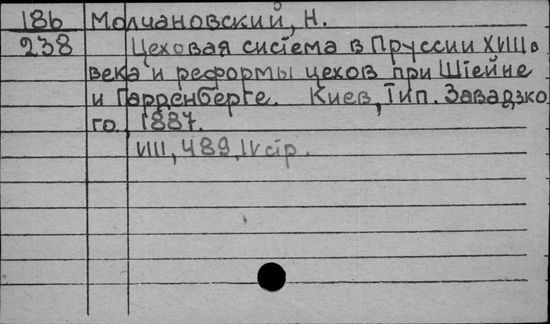 186 Молчановский, Н.
238 Цеховая система в Пруссии XVIIIв
века и реформы цехов при Штейне
и Гарденберге. Киев, Тип. Завадзко
го, 1887.
VIII, 489, IV стр.